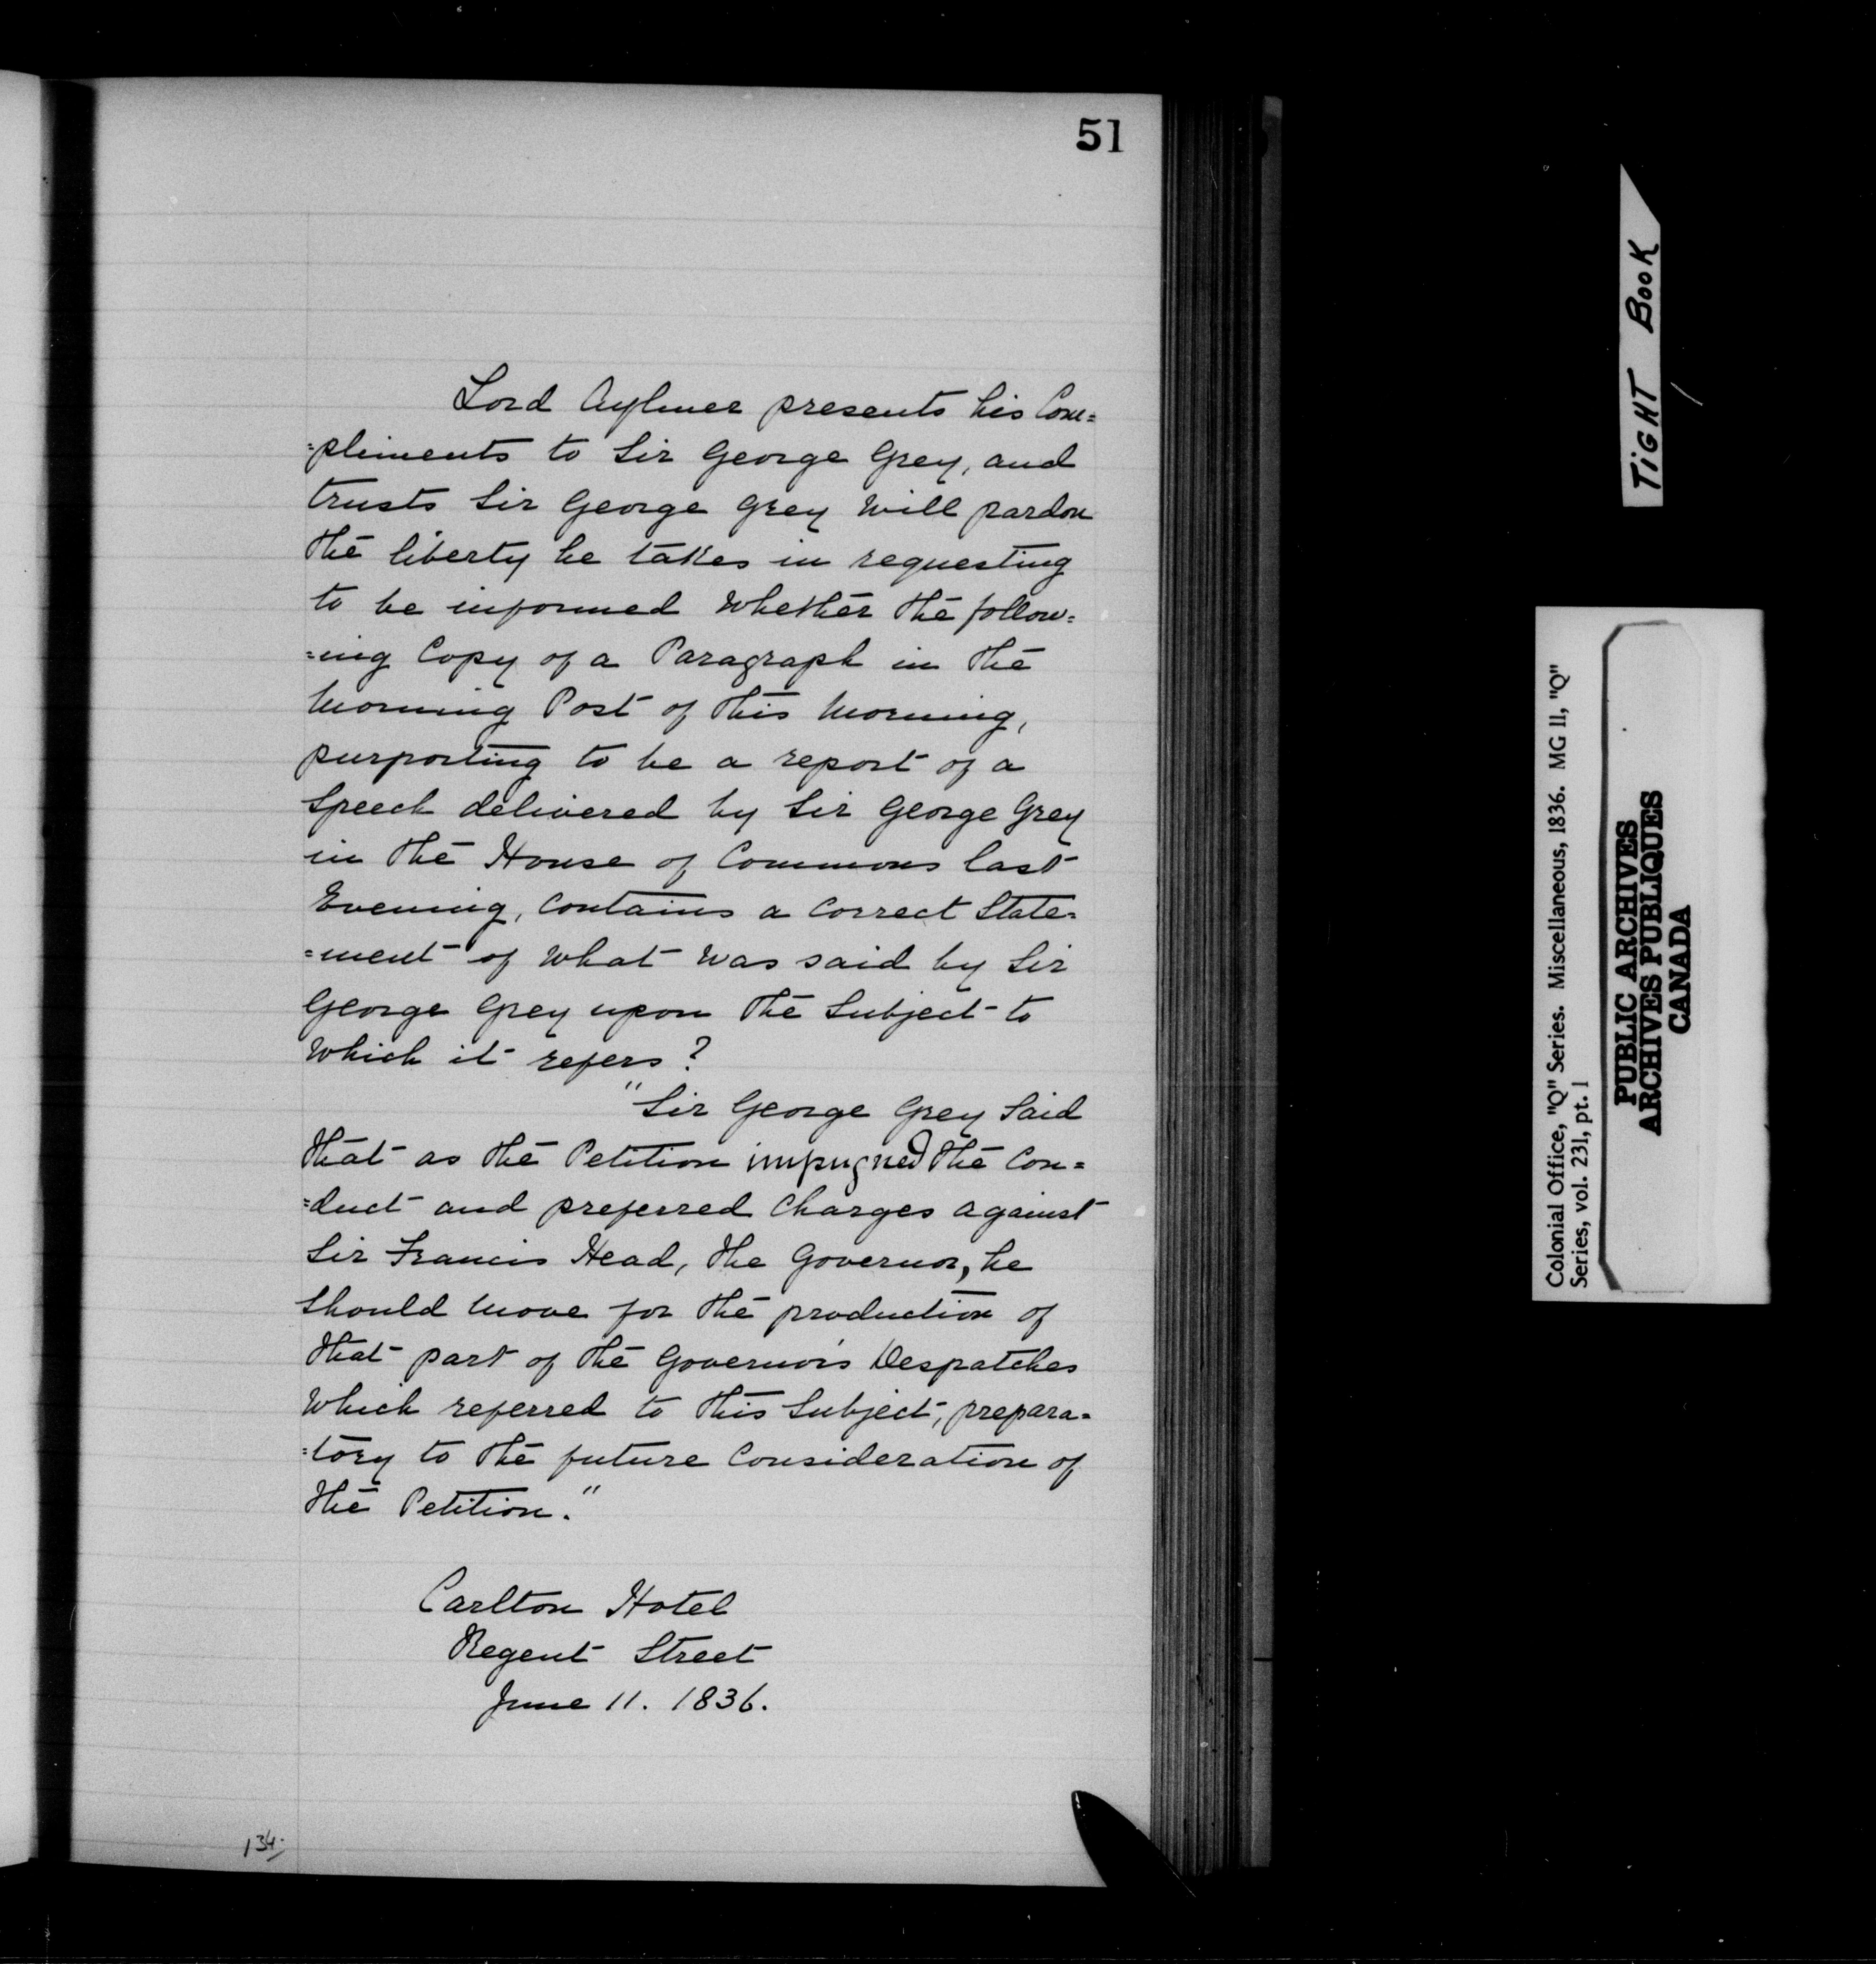 51
Lord Aylmer presents his Com=
=pliments to Sir George Grey, and
trusts Sir George Grey will pardon
the liberty he takes in requesting
to be informed whether the follow=
=ing Copy of a Paragraph in the
Morning Post of this Morning,
purporting to be a report of a
Speech delivered by Sir George Grey
in the House of Commons last
Evening, contains a correct State=
=ment of what was said by Sir
George Grey upon the Subject to
which it refers?
"Sir George Grey said
that as the Petition impugned the Con=
=duct and preferred Charges against
Sir Francis Head, the Governor, he
should move for the production of
that part of the Governor's Despatches
which referred to this Subject, prepara=
=tory to the future Consideration of
the Petition."
Carlton Hotel
Regent Street
June 11. 1836.
134.
TIGHT BOOK
Colonial Office, "Q" Series. Miscellaneous, 1836. MG 11, "Q"
Series, vol. 231, pt. 1
PUBLIC ARCHIVES
ARCHIVES PUBLIQUES
CANADA